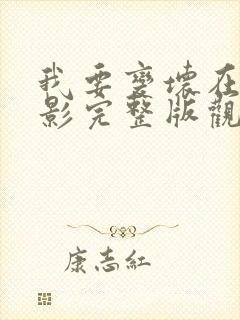 我要变壞在
影完整版觀
康志紅